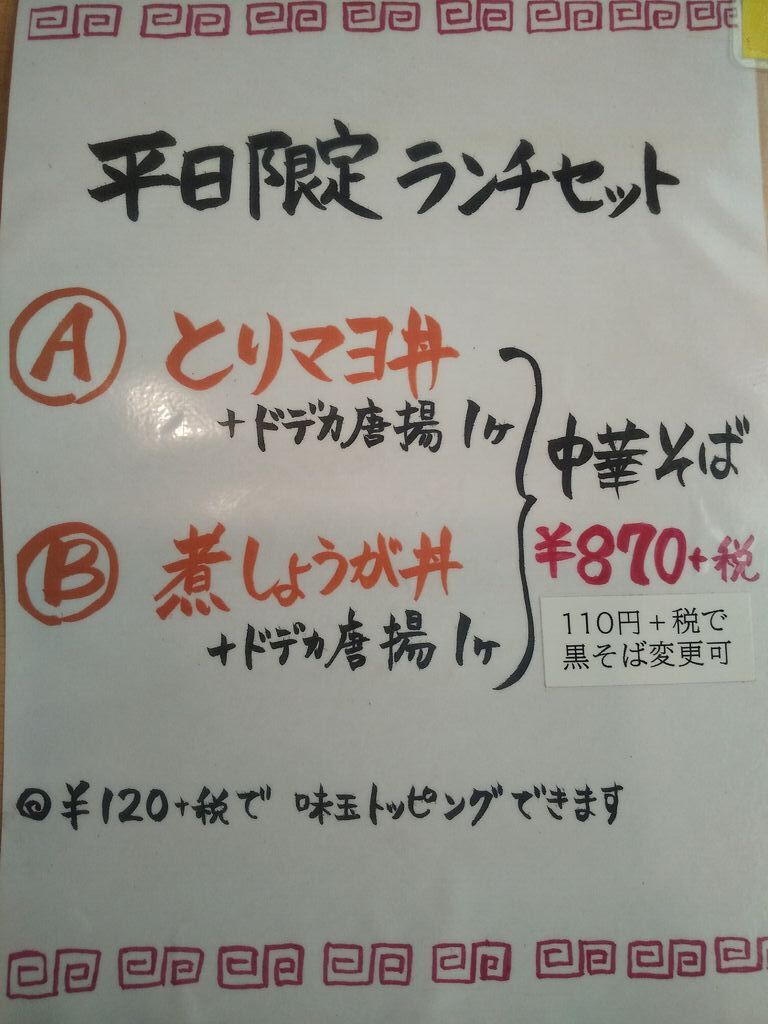 平日限定 ランチセット
Ⓐ とりマヨ丼
+ドデカ唐揚 1ヶ
Ⓑ 煮しょうが丼
+ドデカ唐揚 1ヶ
中華そば
¥870+税
110円+税で
黒そば変更可
◎¥120+税で 味玉トッピングできます